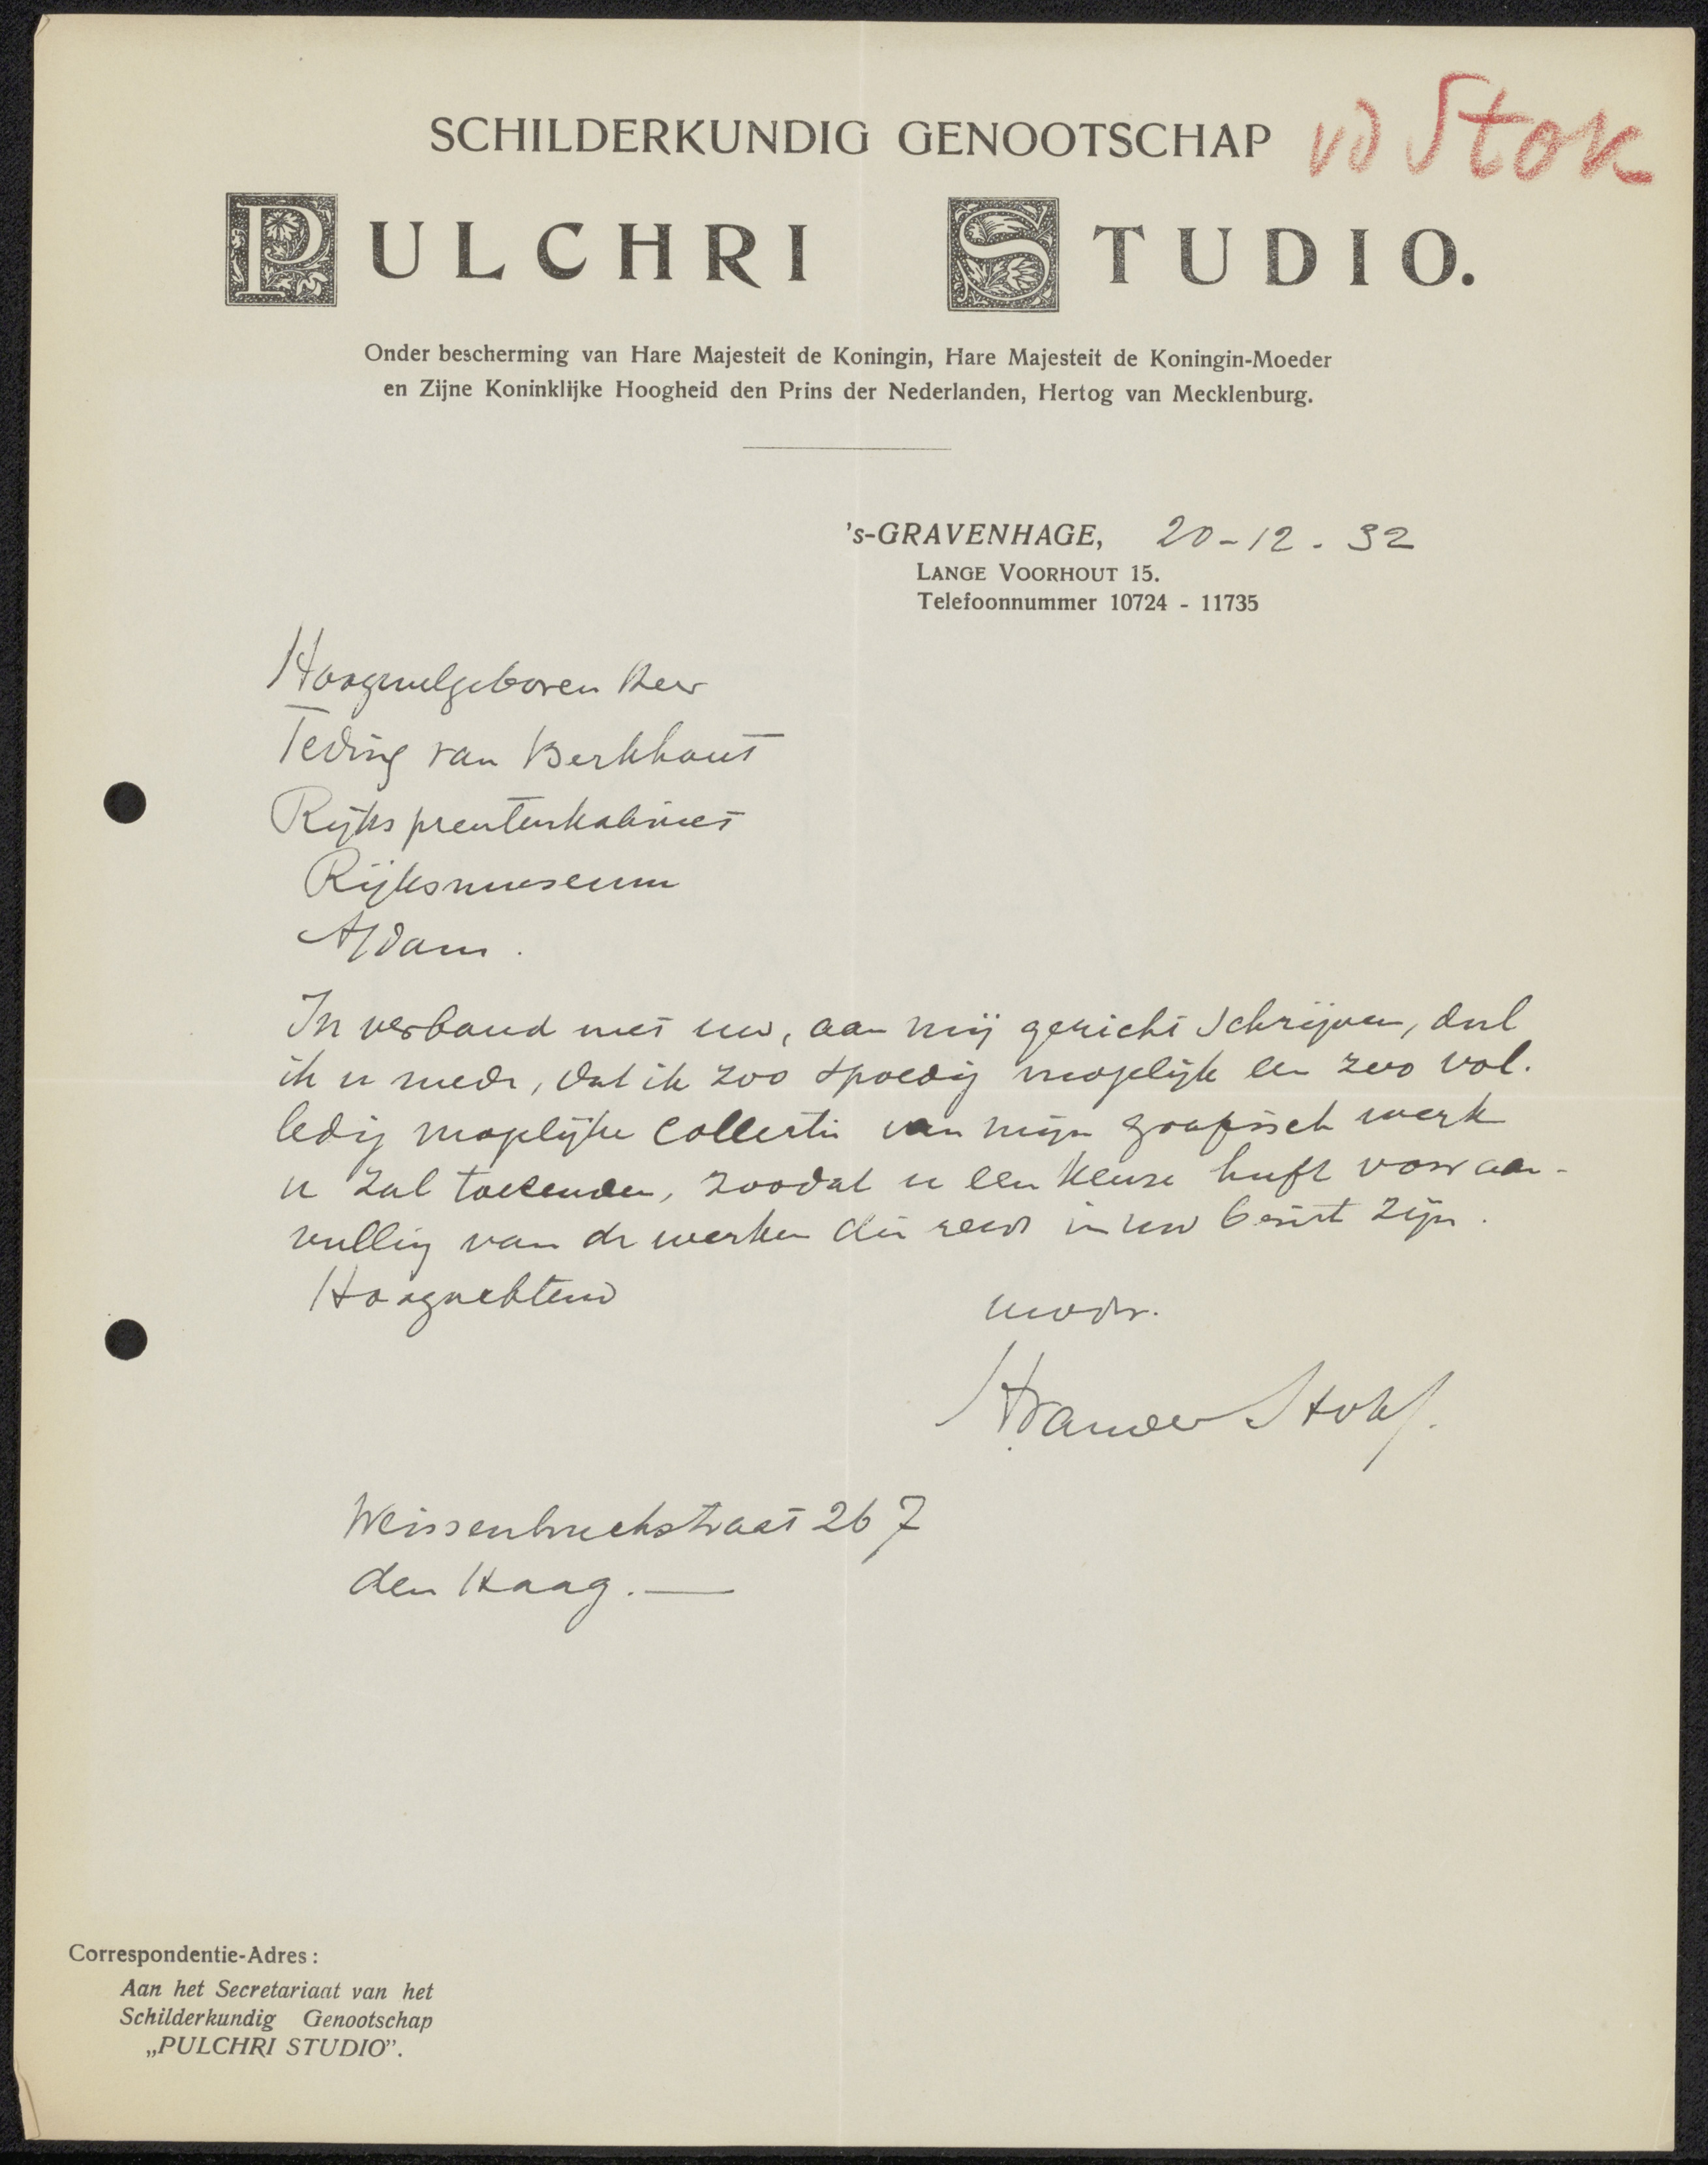 vd Stok
SCHILDERKUNDIG GENOOTSCHAP
PULCHRI STUDIO.
Onder bescherming van Hare Majesteit de Koningin, Hare Majesteit de Koningin-Moeder
en Zijne Koninklijke Hoogheid den Prins der Nederlanden, Hertog van Mecklenburg.
's-GRAVENHAGE, 20-12-32
LANGE VOORHOUT 15.
Telefoonnummer 10724 - 11735
Hoogwelgeboren Heer
Teding van Berkhout
Rijksprentenkabinet
Rijksmuseum
A/dam.
In verband met uw, aan mij gericht schrijven, deel
ik u mede, dat ik zoo spoedig mogelijk een zoo vol-
ledig mogelijke collectie van mijn grafisch werk
u zal toezenden, zoodat u een keuze heeft voor aan-
vulling van de werken die reeds in uw bezit zijn.
Hoogachtend
uwdr.
van der Stok
Weissenbruchstraat 267
den Haag.—
Correspondentie-Adres:
Aan het Secretariaat van het
Schilderkundig Genootschap
„PULCHRI STUDIO”.